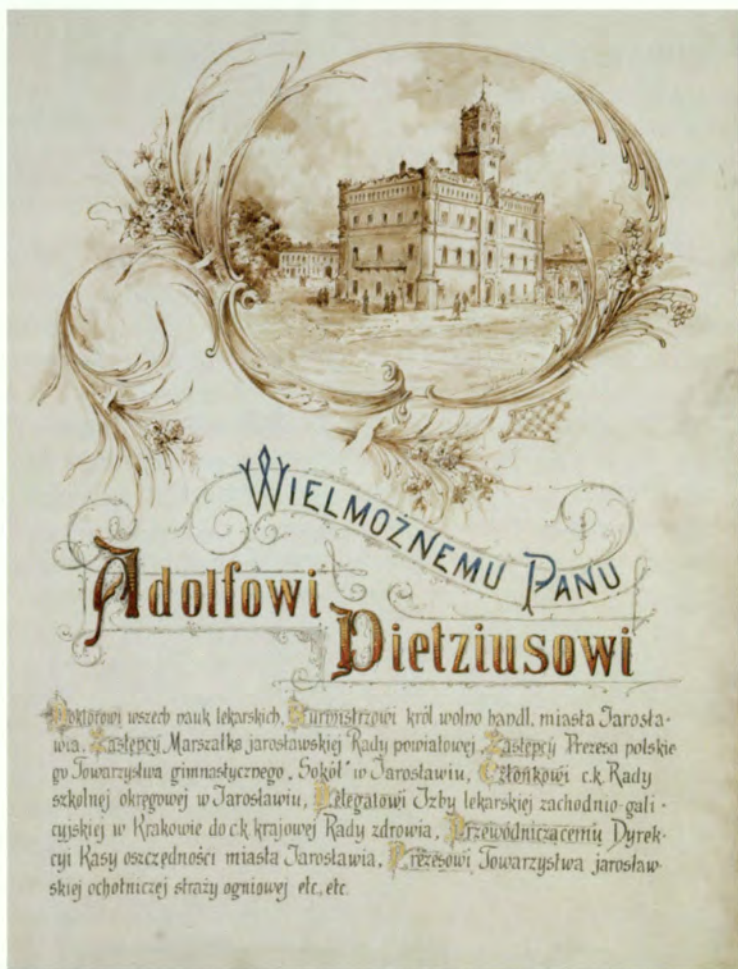 WIELMOŻNEMU PANU
Adolfowi
Dietziusowi
Doktorowi wszech nauk lekarskich, Burmistrzowi król wolno handl. miasta Jarosła-
wia, Zastępcy Marszałka jarosławskiej Rady powiatowej, Zastępcy Prezesa polskie
go Towarzystwa gimnastycznego „Sokół" w Jarosławiu, Członkowi c.k. Rady
szkolnej okręgowej w Jarosławiu, Delegatowi Izby lekarskiej zachodnio-gali-
cyjskiej w Krakowie do c.k. krajowej Rady zdrowia, Przewodniczącemu Dyrek-
cyi Kasy oszczędności miasta Jarosławia, Prezesowi Towarzystwa jarosław-
skiej ochotniczej straży ogniowej etc, etc.